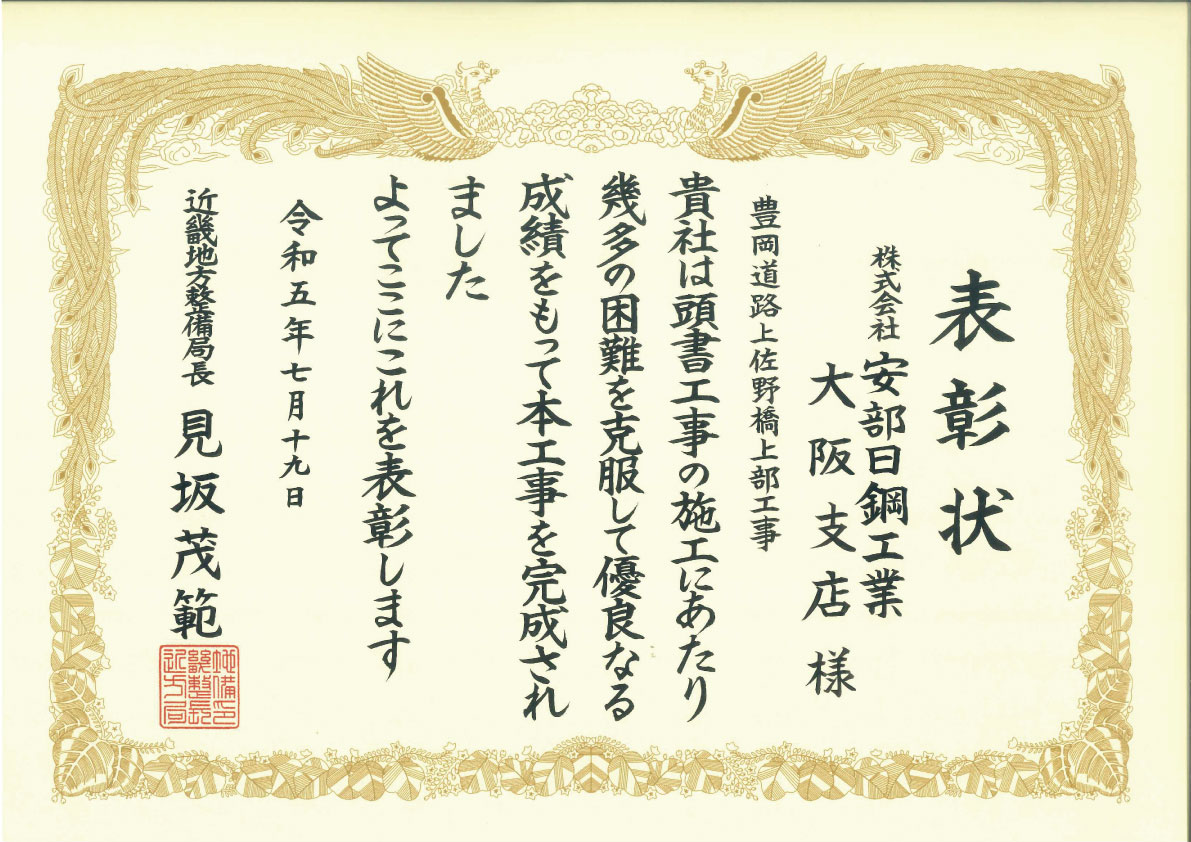 表彰状
株式会社 安部日鋼工業
大阪支店 様
豊岡道路上佐野橋上部工事
貴社は頭書工事の施工にあたり
幾多の困難を克服して優良なる
成績をもって本工事を完成され
ました
よってここにこれを表彰します
令和五年七月十九日
近畿地方整備局長 見坂茂範